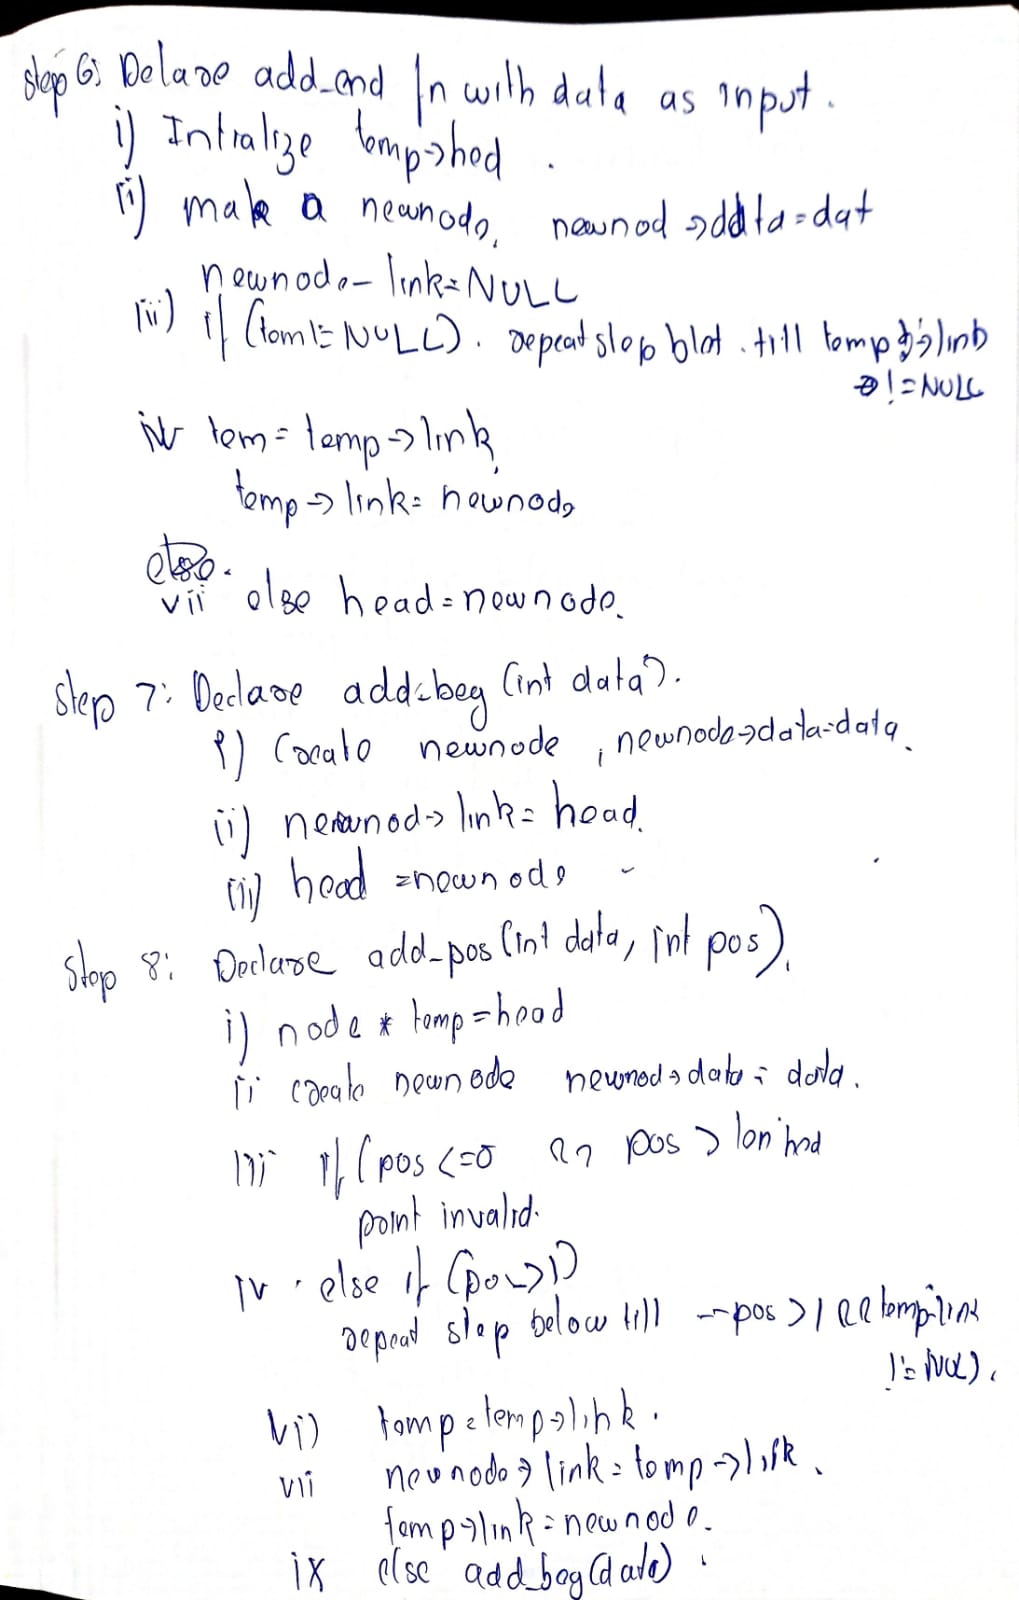 Step 6: Delare add_end fn with data as input.
i) Intialize temp→hed.
ii) make a newnode, newnod→data=dat
newnode- link=NULL
iii) if (tem!=NULL). repeat step blot. till temp→link
!=NULL
iv tem= temp→link,
temp→link= newnode
else.
vii else head=newnode.
Step 7: Declare add_beg (int data).
i) Create newnode, newnode→data=data.
ii) newnod→link= head.
iii) head =newnode
Step 8: Declare add_pos (int data, int pos).
i) node * temp=head
ii create newnode newnod→data= data.
iii if (pos <=0 pos >
point invalid.
iv. else if (pos>1)
repeat step below till --pos >1 && temp→link
!= NULL).
vi) temp=temp→link.
vii newnode→link=temp→link.
temp→link=newnode.
ix else add_beg(data).